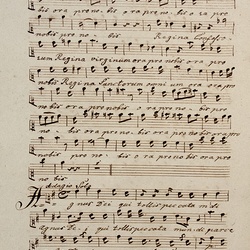 bis ora pro nobis ora pro nobis ora pro
nobis pro no - bis Regina Confesso
rum Regina virginum ora pro nobis ora pro
nobis Regina Sanctorum omnium ora ora pro
nobis ora pro nobis ora pro nobis pro
nobis ora pro nobis ora pro nobis ora pro
nobis pro nobis ora pro nobis pro no
bis
Adagio Solo
Agnus Dei qui tollis peccata mundi
Agnus Dei qui tollis peccata mundi parce